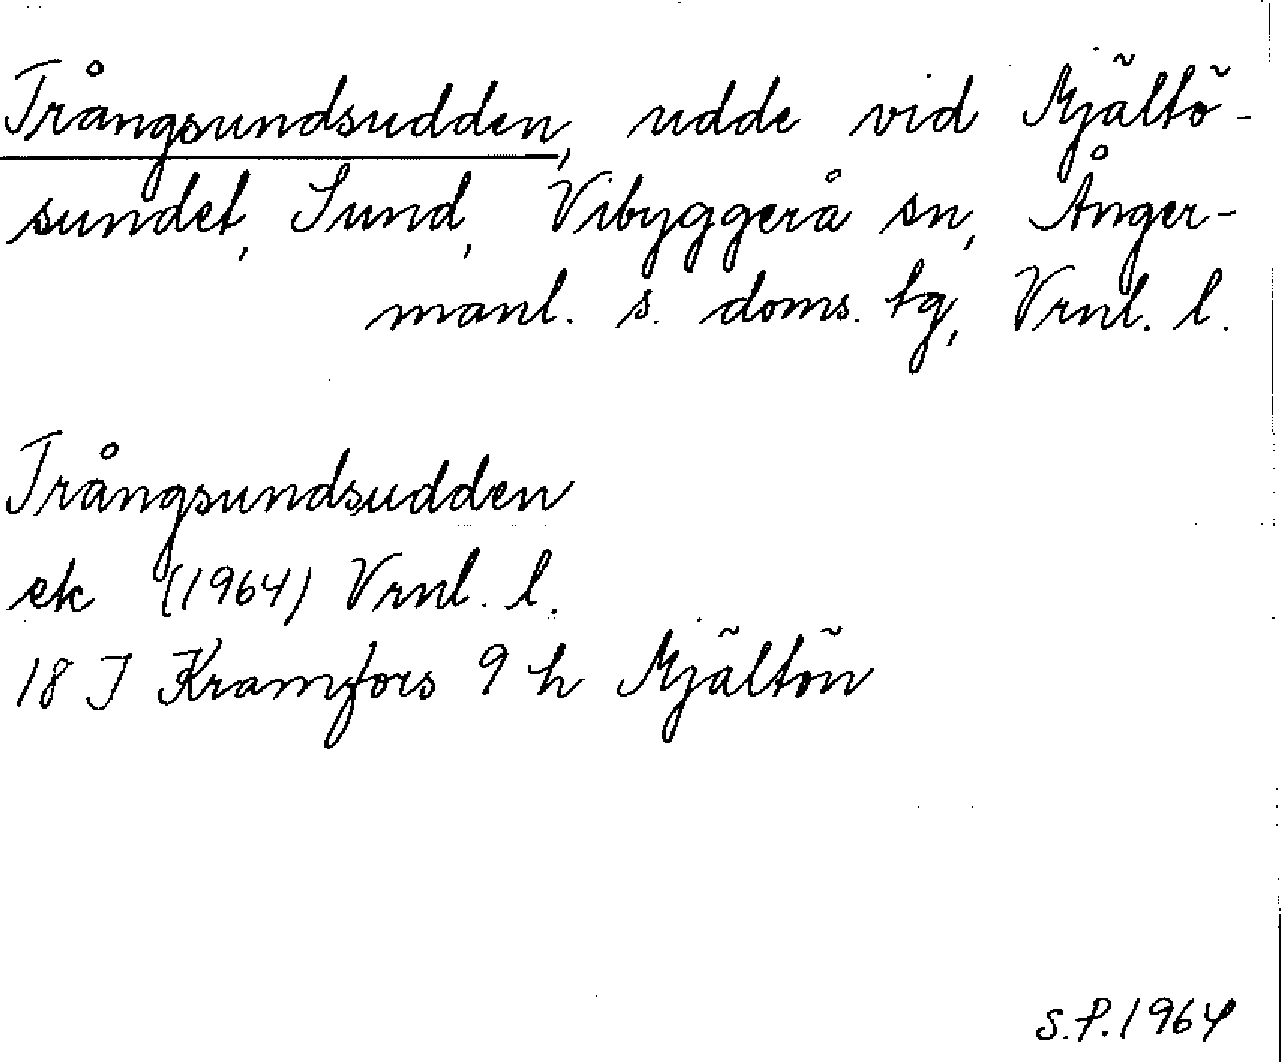 Trångsundsudden, udde vid Mjältö-
sundet, Sund, Vibyggerå sn, Ånger-
manl. s. doms. tg, Vrnl. l.
Trångsundsudden
ek (1964) Vrnl. l.
18 I Kramfors 9 h Mjältön
S.P. 1964